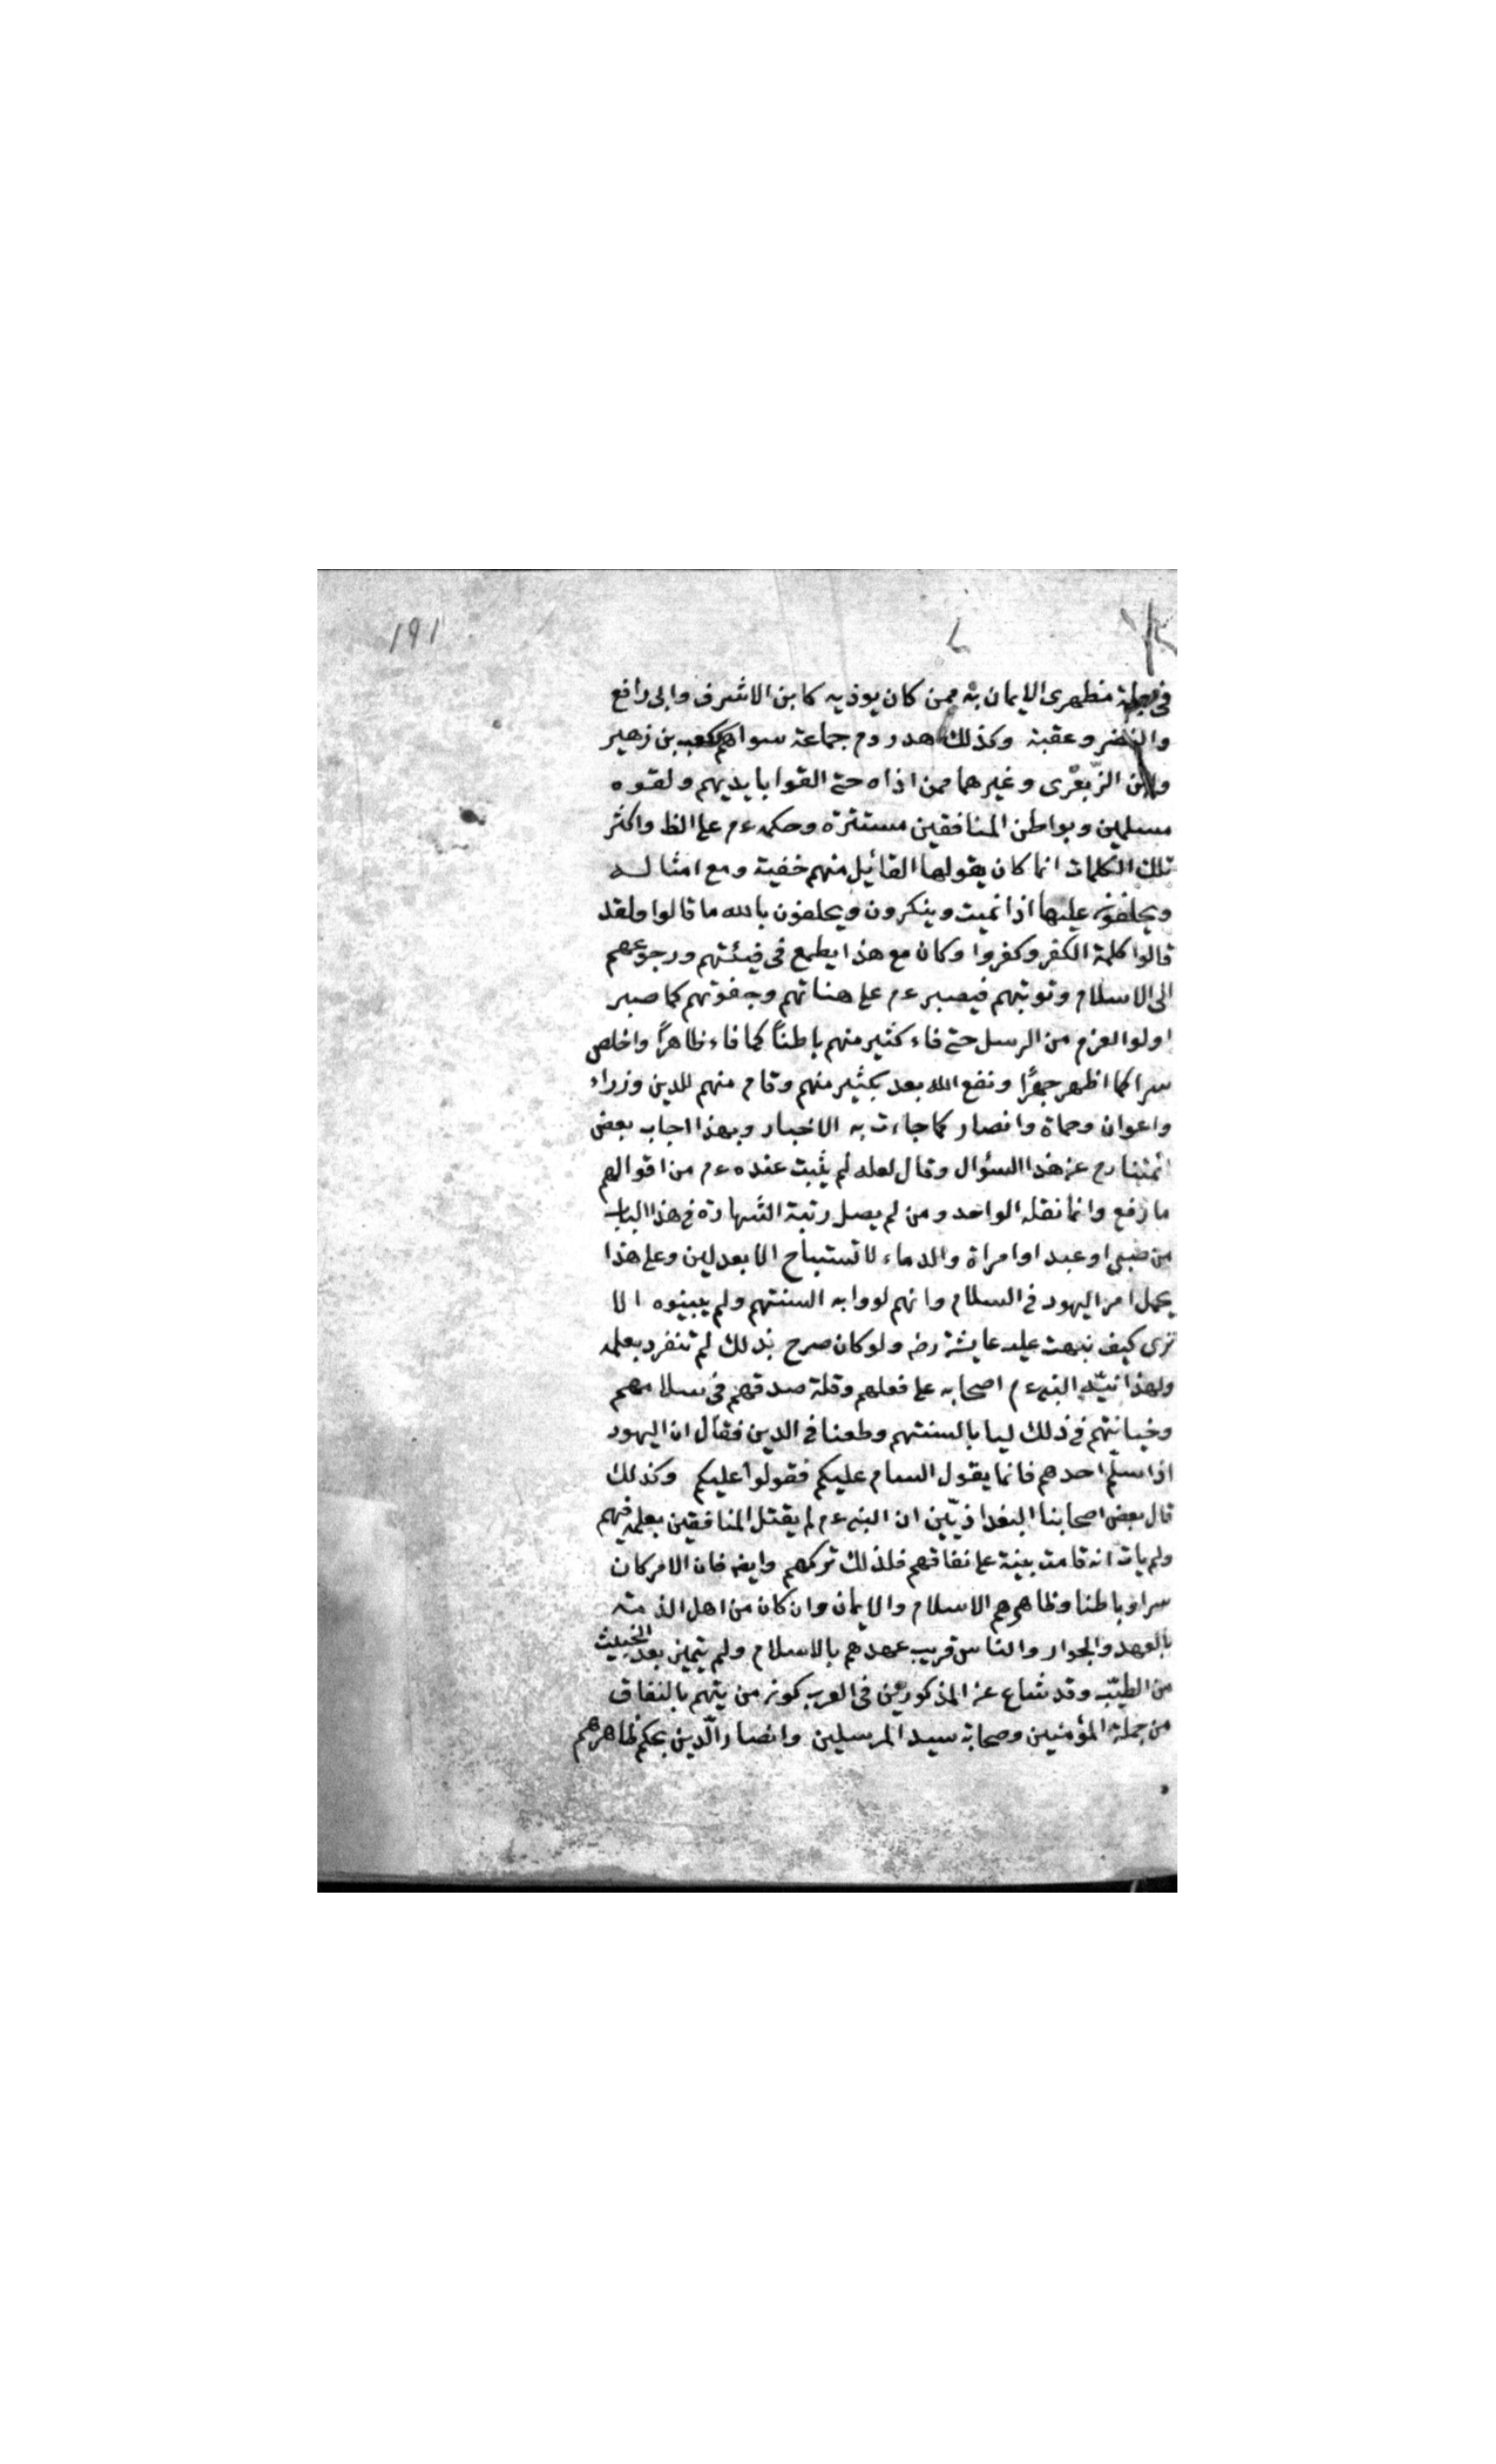 ١٩١
في جملة مظهري الايمان به ممن كان يوذيه كابن الاشرف وابي رافع
والنضر وعقبة وكذلك هدر دم جماعة سواهم ككعب بن زهير
وابن الزّبعرى وغيرهما ممن اذاه حتى القوا بايديهم ولقوه
مسلمين وبواطن المنافقين مستترة وحكمه ءم على الظ واكثر
تلك الكلمات انما كان يقولها القائيل منهم خفية ومع امثاله
ويحلفون عليها اذا نميت وينكرون ويحلفون بالله ما قالوا ولقد
قالوا كلمة الكفر وكفروا وكان مع هذا يطمع في فيئتهم ورجوعهم
الى الاسلام وتوبتهم فيصبر ءم على هناتهم وجفوتهم كما صبر
اولوا العزم من الرسل حتى فاء كثير منهم باطنًا كما فاء ظاهرًا واخلص
سرا كما اظهر جهرًا ونفع الله بعد بكثير منهم وقام منهم للدين وزراء
واعوان وحماة وانصار كما جاءت به الاخبار وبهذا اجاب بعض
ائمتنا رح عن هذا السؤال وقال لعله لم يثبت عنده ءم من اقوالهم
ما رفع وانما نقله الواحد ومن لم يصل رتبة الشهادة في هذا الباب
من صبي او عبد او امراة والدماء لا تستباح الا بعدلين وعلى هذا
يحمل امر اليهود في السلام وانهم لووا به السنتهم ولم يبينوه الا
ترى كيف نبهت عليه عايشة رضه ولو كان صرح بذلك لم تنفرد بعلمه
ولهذا نبّه النبي ءم اصحابه على فعلهم وقلة صدقهم في سلامهم
وخيانتهم في ذلك ليا بالسنتهم وطعنا في الدين فقال ان اليهود
اذا سلّم احدهم فانما يقول السام عليكم فقولوا عليكم وكذلك
قال بعض اصحابنا البغداذيّين ان النبي ءم لم يقتل المنافقين بعلمه فيهم
ولم يات انه قامت بينة على نفاقهم فلذلك تركهم وايضه فان الامر كان
سرا وباطنا وظاهرهم الاسلام والايمان وان كان من اهل الذمته
بالعهد والجوار والناس قريب عهدهم بالاسلام ولم يتميز بعد الخبيث
من الطيّب وقد شاع عن المذكورين في العرب كون من يتهم بالنفاق
من جملة المؤمنين وصحابة سيد المرسلين وانصار الّدين بحكم ظاهرهم